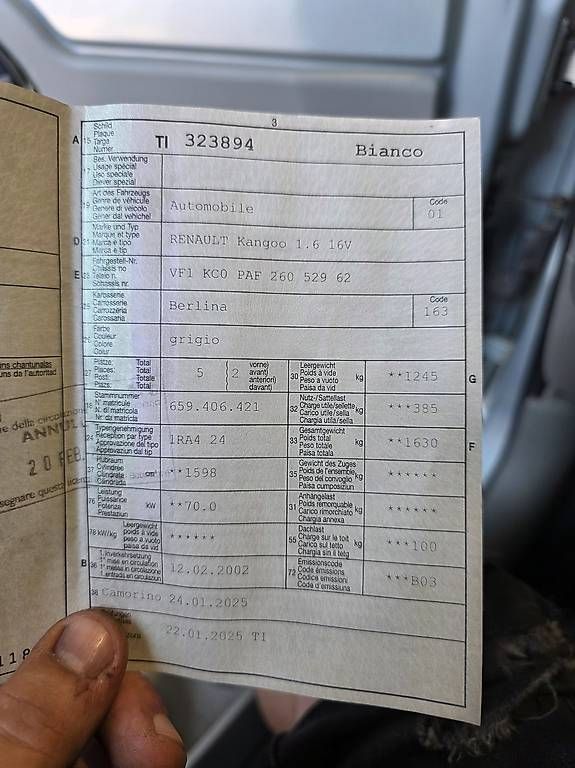 3
A 15 Schild
Plaque
Targa
Numer
TI 323894 Bianco
17 Bes. Verwendung
Usage spécial
Uso speciale
Diever spezial
19 Art des Fahrzeugs
Genre de véhicule
Genere di veicolo
Gener dal vehichel
Automobile
Code
01
D 21 Marke und Typ
Marque et type
Marca e tipo
Marca e tip
RENAULT Kangoo 1.6 16V
E 23 Fahrgestell-Nr.
Châssis no
Telaio n.
Schassis nr.
VF1 KC0 PAF 260 529 62
25 Karosserie
Carrosserie
Carrozzeria
Carossaria
Berlina
Code
163
26 Farbe
Couleur
Colore
Colur
grigio
27 Plätze: Total
Places: Total
Posti: Totale
Plazs: Total
5 { 2 vorne)
avant)
anteriori)
davant)
30 Leergewicht
Poids à vide
Peso a vuoto
Paisa da vid
kg **1245 G
Stammnummer
N° matricule
N. di matricola
Nr. da matricla
659.406.421
32 Nutz-/Sattellast
Charge utile/sellette
Carico utile/sella
Chargia utila/sella
kg ***385
24 Typengenehmigung
Réception par type
Approvazione del tipo
Approvaziun dal tip
1RA4 24
33 Gesamtgewicht
Poids total
Peso totale
Paisa totala
kg **1630 F
37 Hubraum
Cylindrée
Cilindrata
Cilindrada
cm³ **1598
35 Gewicht des Zuges
Poids de l'ensemble
Peso del convoglio
Paisa cumposiziun
kg ******
76 Leistung
Puissance
Potenza
Prestaziun
kW **70.0
31 Anhängelast
Poids remorquable
Carico rimorchiato
Chargia annexa
kg ******
78 kW/kg Leergewicht
poids à vide
peso a vuoto
paisa da vid
******
55 Dachlast
Charge sur le toit
Carico sul tetto
Chargia sin il tetg
kg ***100
B 36 1. Inverkehrsetzung
1re mise en circulation
1a messa in circolazione
1. entrada en circulaziun
12.02.2002
72 Emissionscode
Code émissions
Codice emissioni
Code d'emissiuns
***B03
38 Camorino 24.01.2025
22.01.2025 TI
ANNUL
20 FEB
118